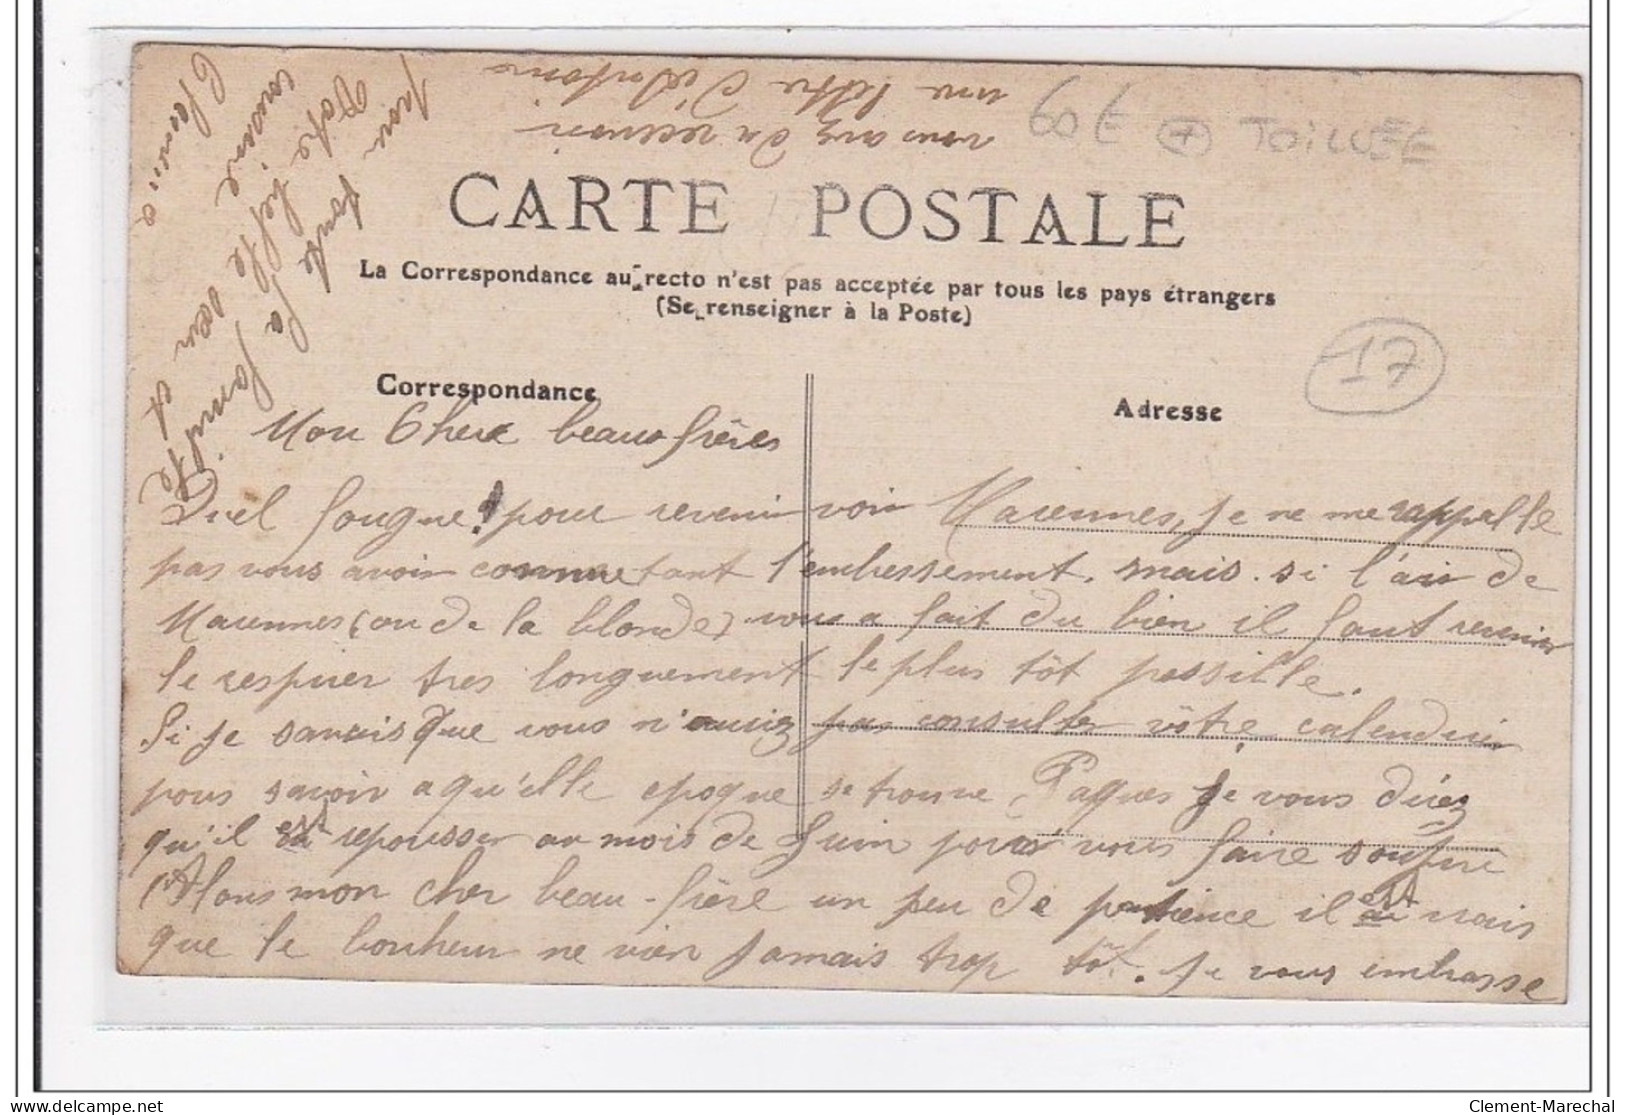 vous avez du recevoir
une lettre d'Antonio
60€ (+) TOILÉE
CARTE POSTALE
La Correspondance au recto n'est pas acceptée par tous les pays étrangers
(Se renseigner à la Poste)
17
Correspondance
Adresse
Mon Cher beau frères
Quel fougue! pour revenir voir Marennes, je ne me rappelle
pas vous avoir connu tant l'embressement. mais si l'air de
Marennes (ou de la blonde) vous a fait du bien il faut revenir
le respirer tres longuement le plus tôt possible.
Si je savais que vous n'auriez pas consulter vôtre calendrier
pour savoir a qu'elle epoque se trouve Paques je vous direz
qu'il est repousser au mois de Juin pour vous faire soufrir
Alons mon cher beau-frère un peu de patience il est vrais
que le bonheur ne vien jamais trop tôt. Je vous embrasse
pour toute la famille
Votre belle sœur et
cousine
Clement-Marechal